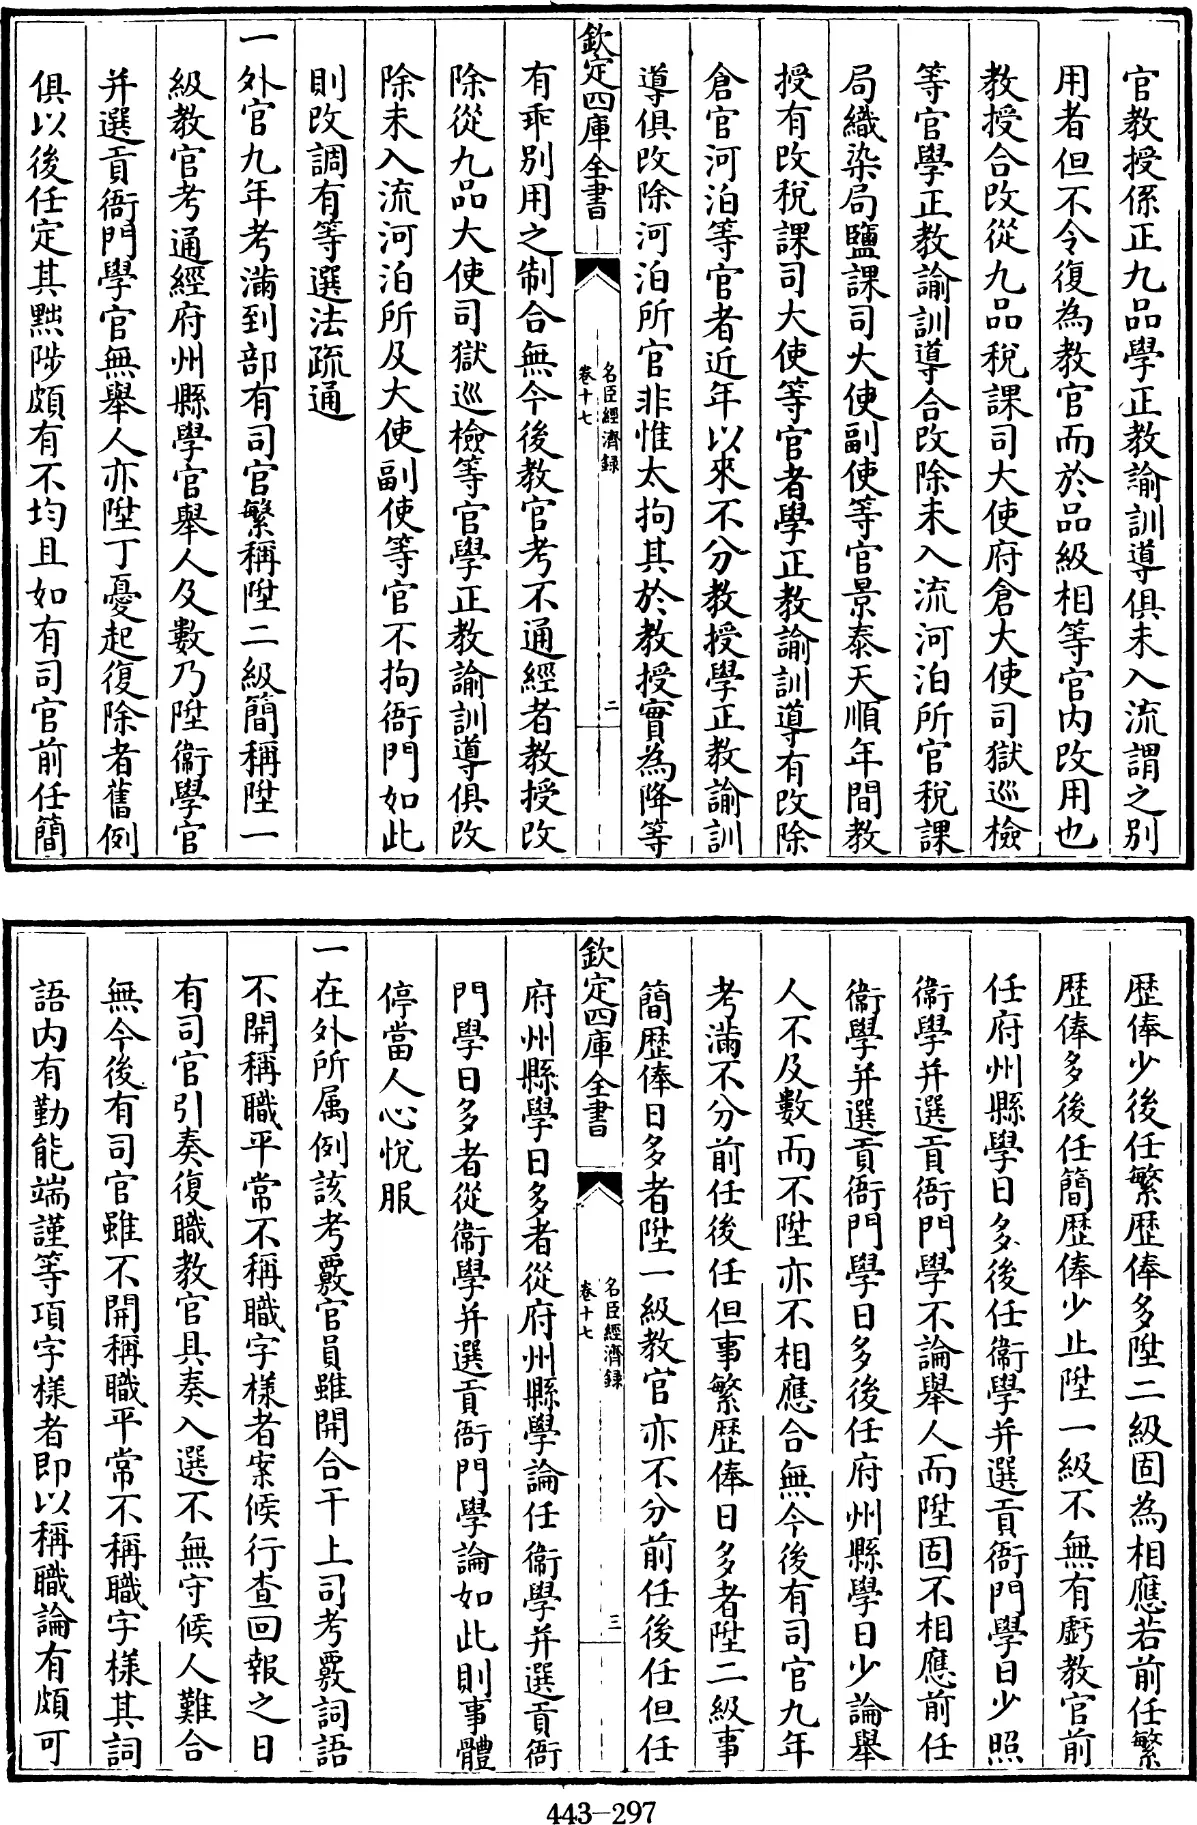 官教授係正九品學正教諭訓導俱未入流謂之别
用者但不令復為教官而於品級相等官内改用也
教授合改從九品稅課司大使府倉大使司獄巡檢
等官學正教諭訓導合改除未入流河泊所官稅課
局織染局鹽課司大使副使等官景泰天順年間教
授有改稅課司大使等官者學正教諭訓導有改除
倉官河泊等官者近年以來不分教授學正教諭訓
導俱改除河泊所官非惟太拘其於教授實為降等
欽定四庫全書
名臣經濟録
卷十七
二
有乖别用之制合無今後教官考不通經者教授改
除從九品大使司獄巡檢等官學正教諭訓導俱改
除未入流河泊所及大使副使等官不拘衙門如此
則改調有等選法疏通
一外官九年考滿到部有司官繁稱陞二級簡稱陞一
級教官考通經府州縣學官舉人及數乃陞衞學官
并選貢衙門學官無舉人亦陞丁憂起復除者舊例
俱以後任定其黜陟頗有不均且如有司官前任簡
歴俸少後任繁歴俸多陞二級固為相應若前任繁
歴俸多後任簡歴俸少止陞一級不無有虧教官前
任府州縣學日多後任衞學并選貢衙門學日少照
衞學并選貢衙門學不論舉人而陞固不相應前任
衞學并選貢衙門學日多後任府州縣學日少論舉
人不及數而不陞亦不相應合無今後有司官九年
考滿不分前任後任但事繁歴俸日多者陞二級事
簡歴俸日多者陞一級教官亦不分前任後任但任
欽定四庫全書
名臣經濟録
卷十七
三
府州縣學日多者從府州縣學論任衞學并選貢衙
門學日多者從衞學并選貢衙門學論如此則事體
停當人心悅服
一在外所属例該考覈官員雖開合干上司考覈詞語
不開稱職平常不稱職字樣者案候行查回報之日
有司官引奏復職教官具奏入選不無守候人難合
無今後有司官雖不開稱職平常不稱職字樣其詞
語内有勤能端謹等項字樣者即以稱職論有頗可
443-297